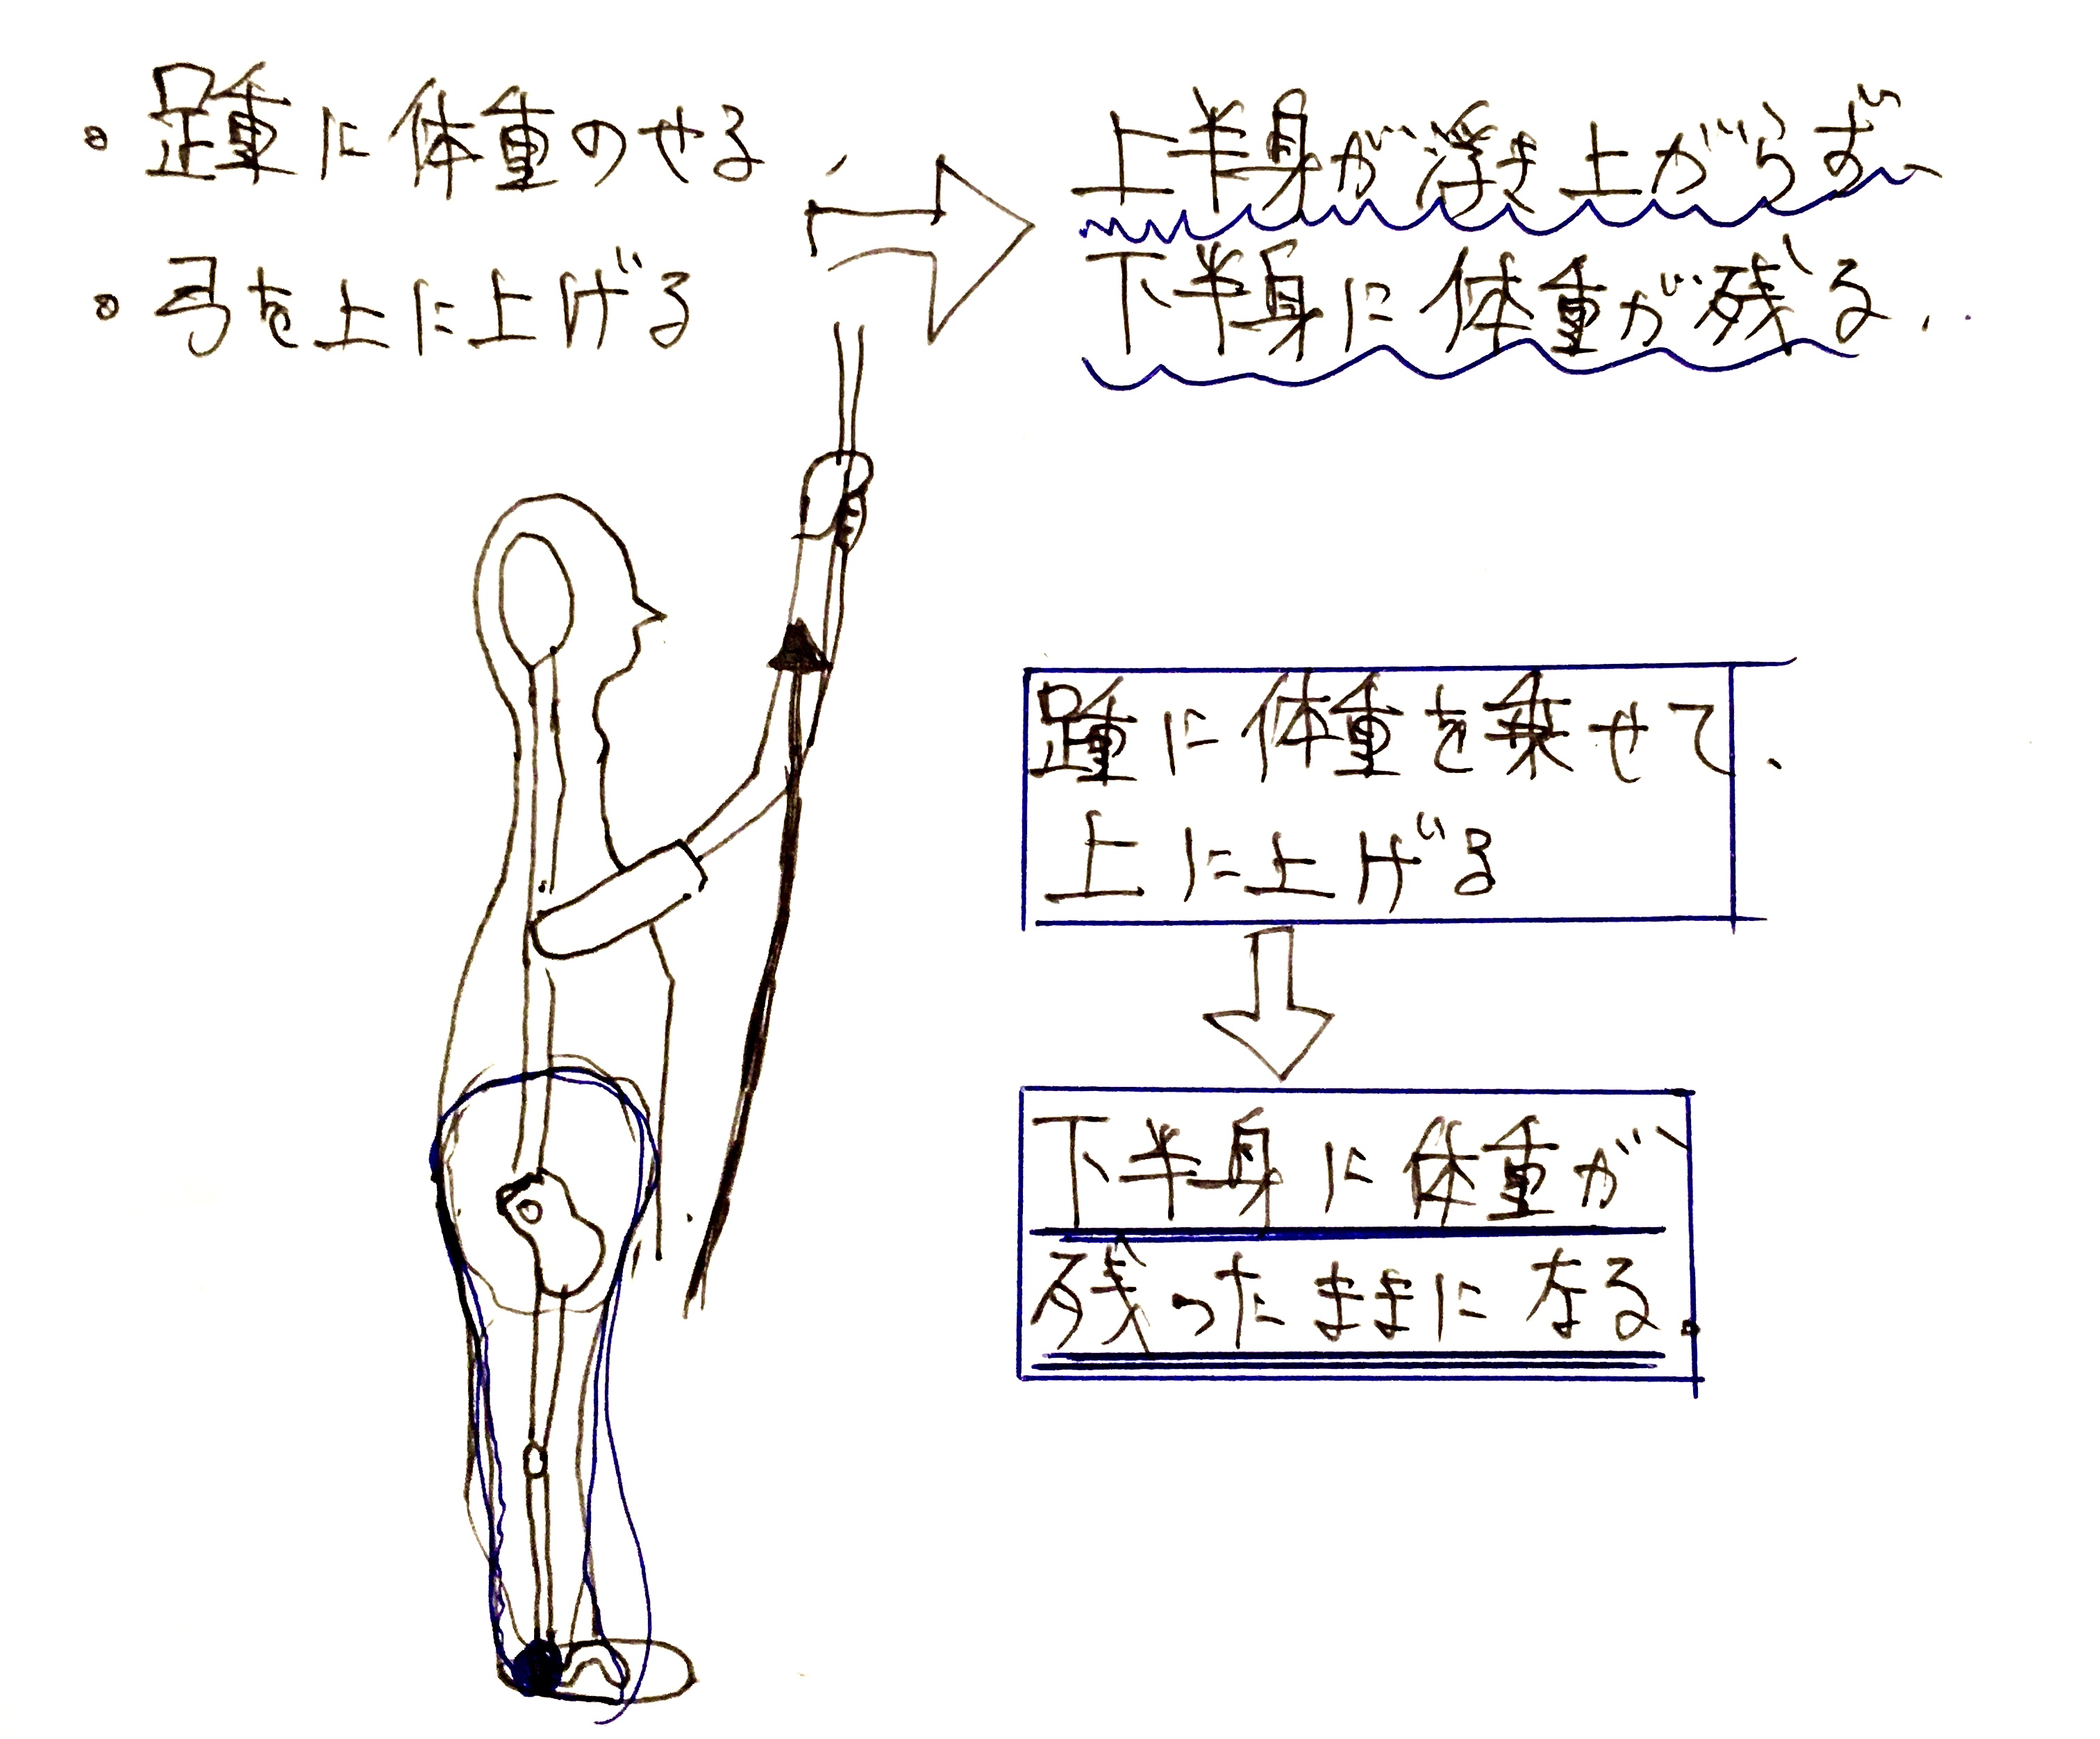 ・踵に体重のせる、
・弓を上に上げる
上半身が浮き上がらず、
下半身に体重が残る.
踵に体重を乗せて、
上に上げる
下半身に体重が
残ったままになる.